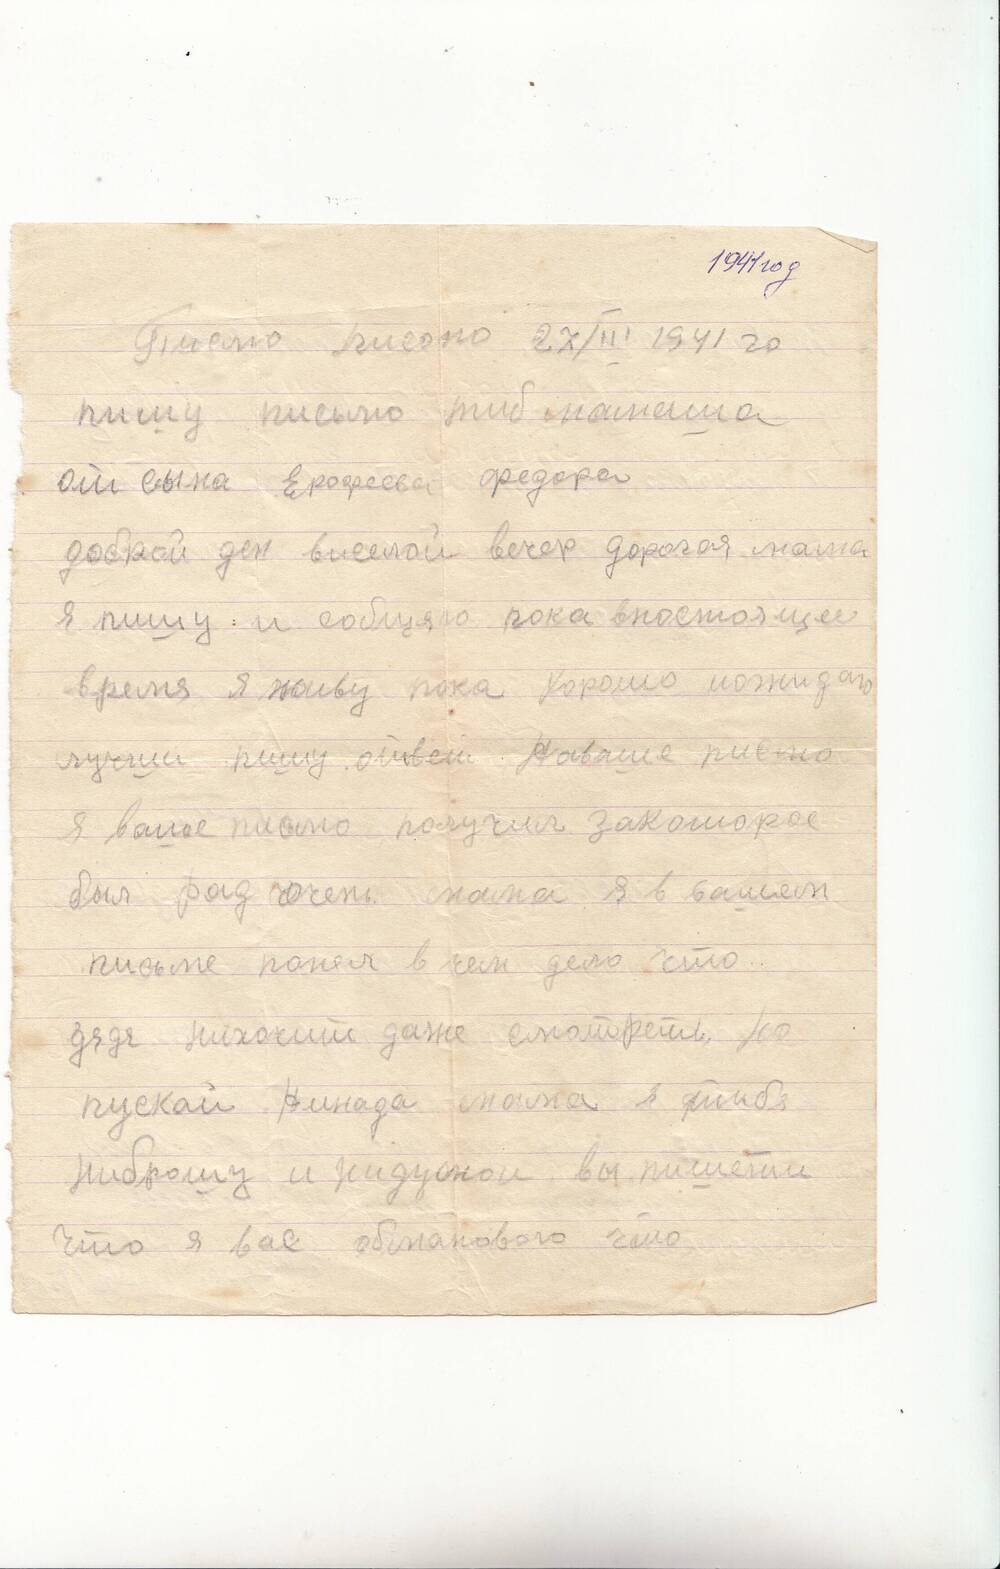 1941 год
Писмо писоно 27/III 1941 го
пишу письмо тиб мамаша
от сына Ерофеева федора
доброй ден виселой вечер дорогая мама
я пишу и собщяю пока вностоящее
время я живу пока хорошо иожидаю
лучши пишу ответ Наваше писмо
я ваше писмо получил закоторое
был рад очень мама я в вашем
письме понел в чем дело что
дядя нихочит даже смотреть, но
пускай Нинада мама я тибя
ниброшу и нидумой вы пишети
что я вас обмановаю что